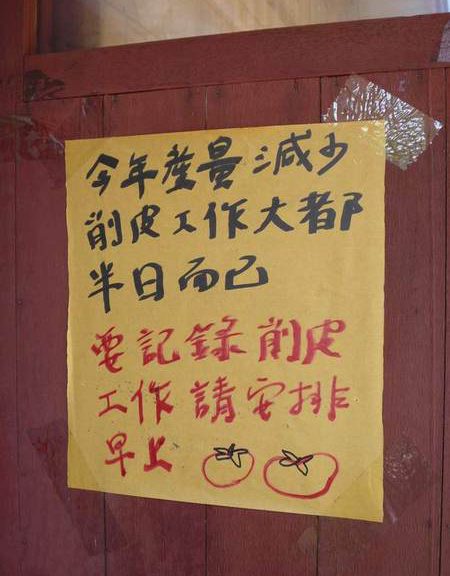 今年產量減少
削皮工作大都
半日而已
要記錄削皮
工作請安排
早上